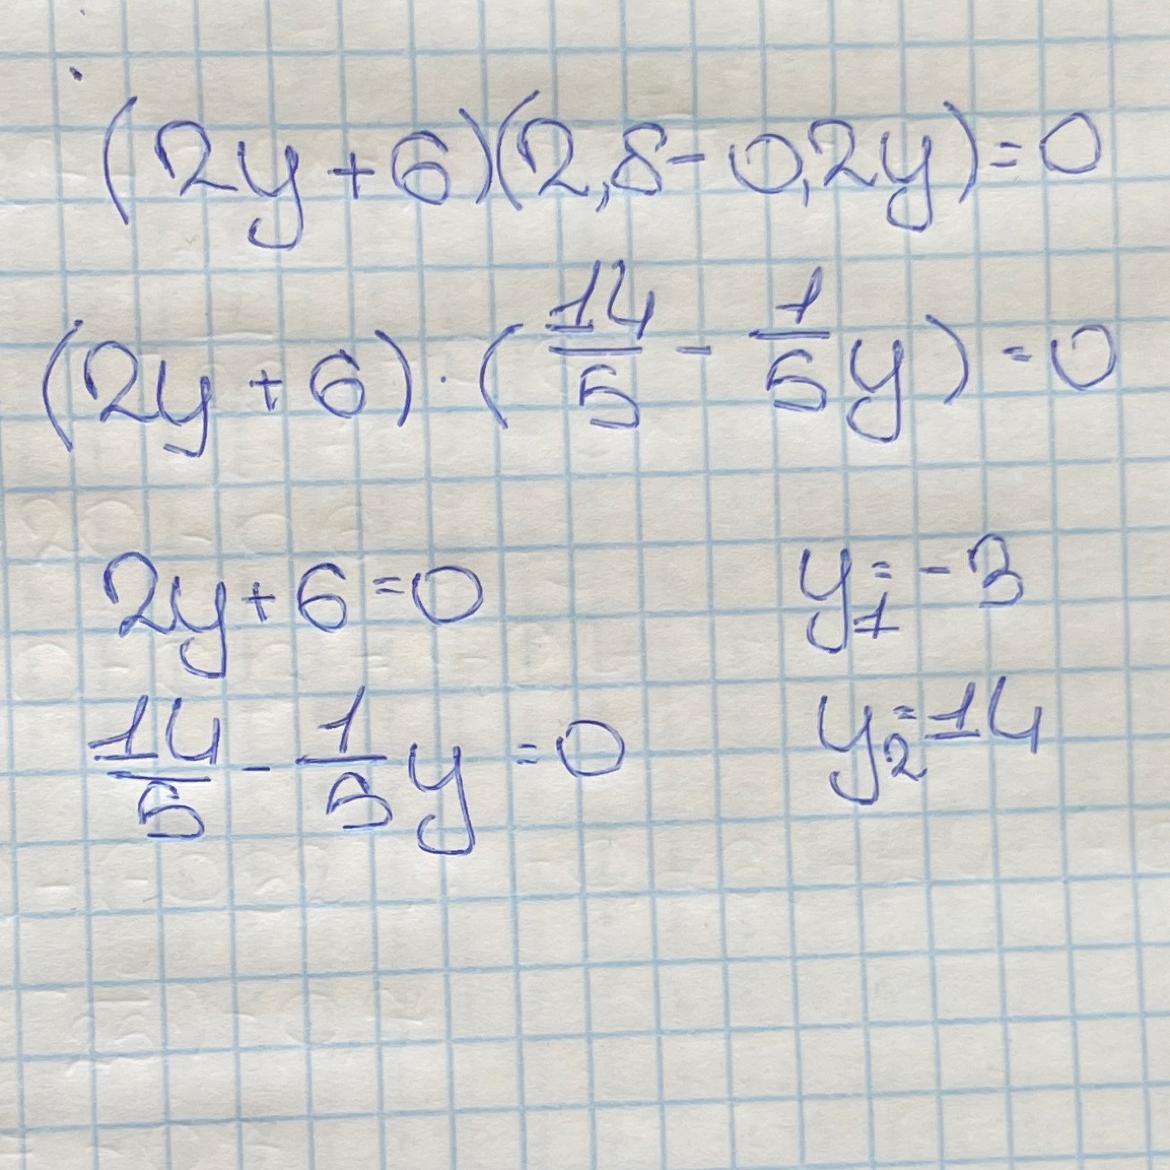 (2y+6)(2,8-0,2y)=0
(2y+6)·(14/5 - 1/5 y)=0
2y+6=0 y₁=-3
14/5 - 1/5 y=0 y₂=14